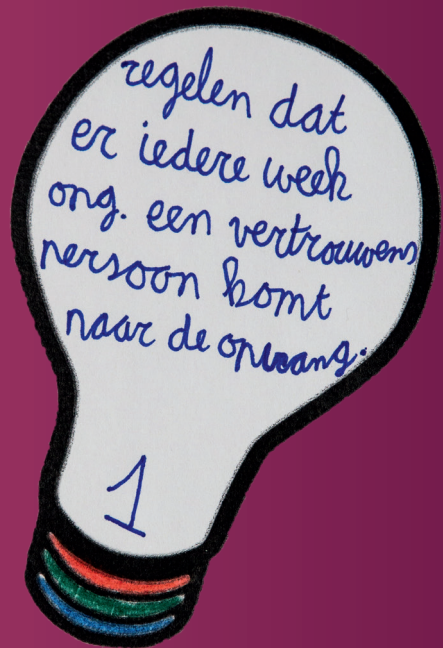 regelen dat
er iedere week
ong. een vertrouwens
persoon komt
naar de opvang.
1